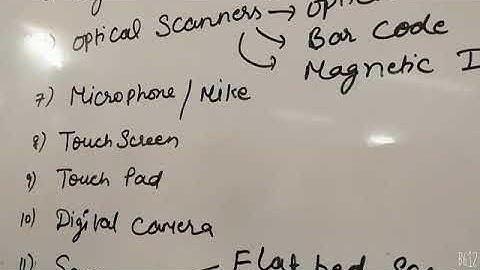 Optical Scanners →
Bar Code
Magnetic
7) Microphone / Mike
8) Touch Screen
9) Touch Pad
10) Digital Camera
11) — Flat bed
B612